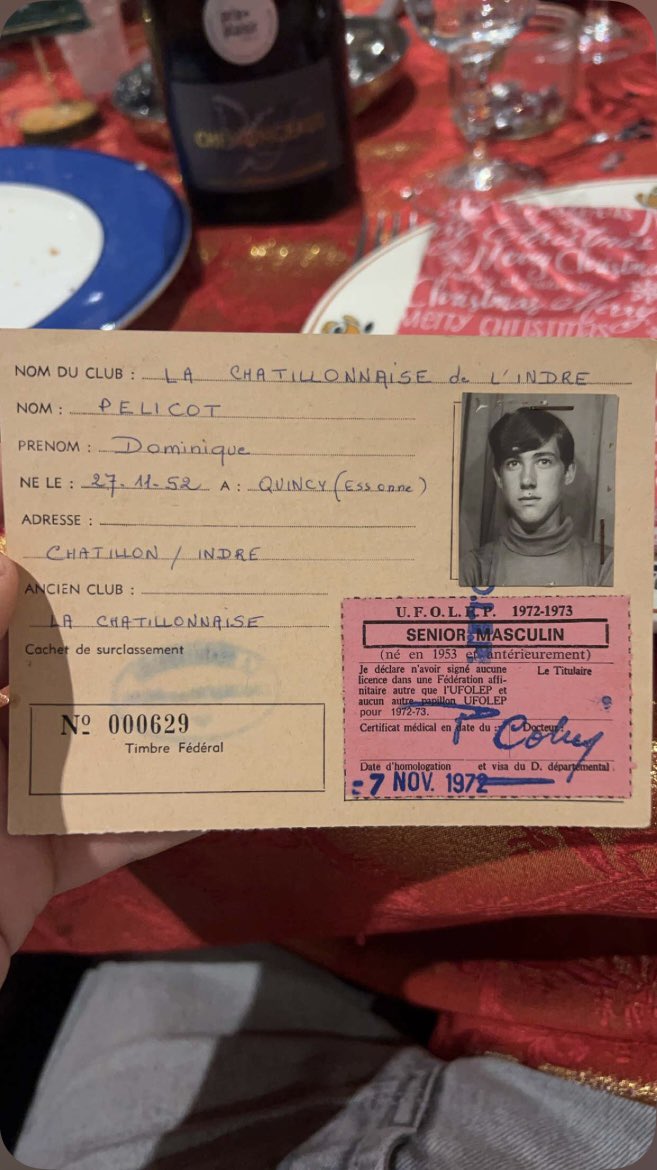 CHENONCEAUX
Merry
Christmas
Christmas Merry
MERRY CHRISTMAS
NOM DU CLUB : LA CHATILLONNAISE de L'INDRE
NOM : PELICOT
PRENOM : Dominique
NE LE : 27-11-52 A : QUINCY (Essonne)
ADRESSE :
CHATILLON / INDRE
ANCIEN CLUB :
LA CHATILLONNAISE
Cachet de surclassement
Nº 000629
Timbre Fédéral
U.F.O.L.E.P. 1972-1973
SENIOR MASCULIN
(né en 1953 et antérieurement)
Je déclare n'avoir signé aucune
licence dans une Fédération affi-
nitaire autre que l'UFOLEP et
aucun autre papillon UFOLEP
pour 1972-73.
Le Titulaire
Certificat médical en date du : Docteur :
Date d'homologation et visa du D. départemental
-7 NOV. 1972